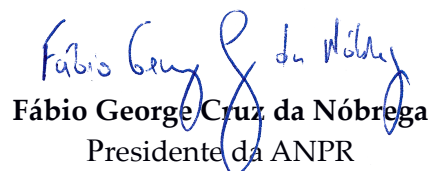 Fábio George Cruz da Nóbrega
Fábio George Cruz da Nóbrega
Presidente da ANPR